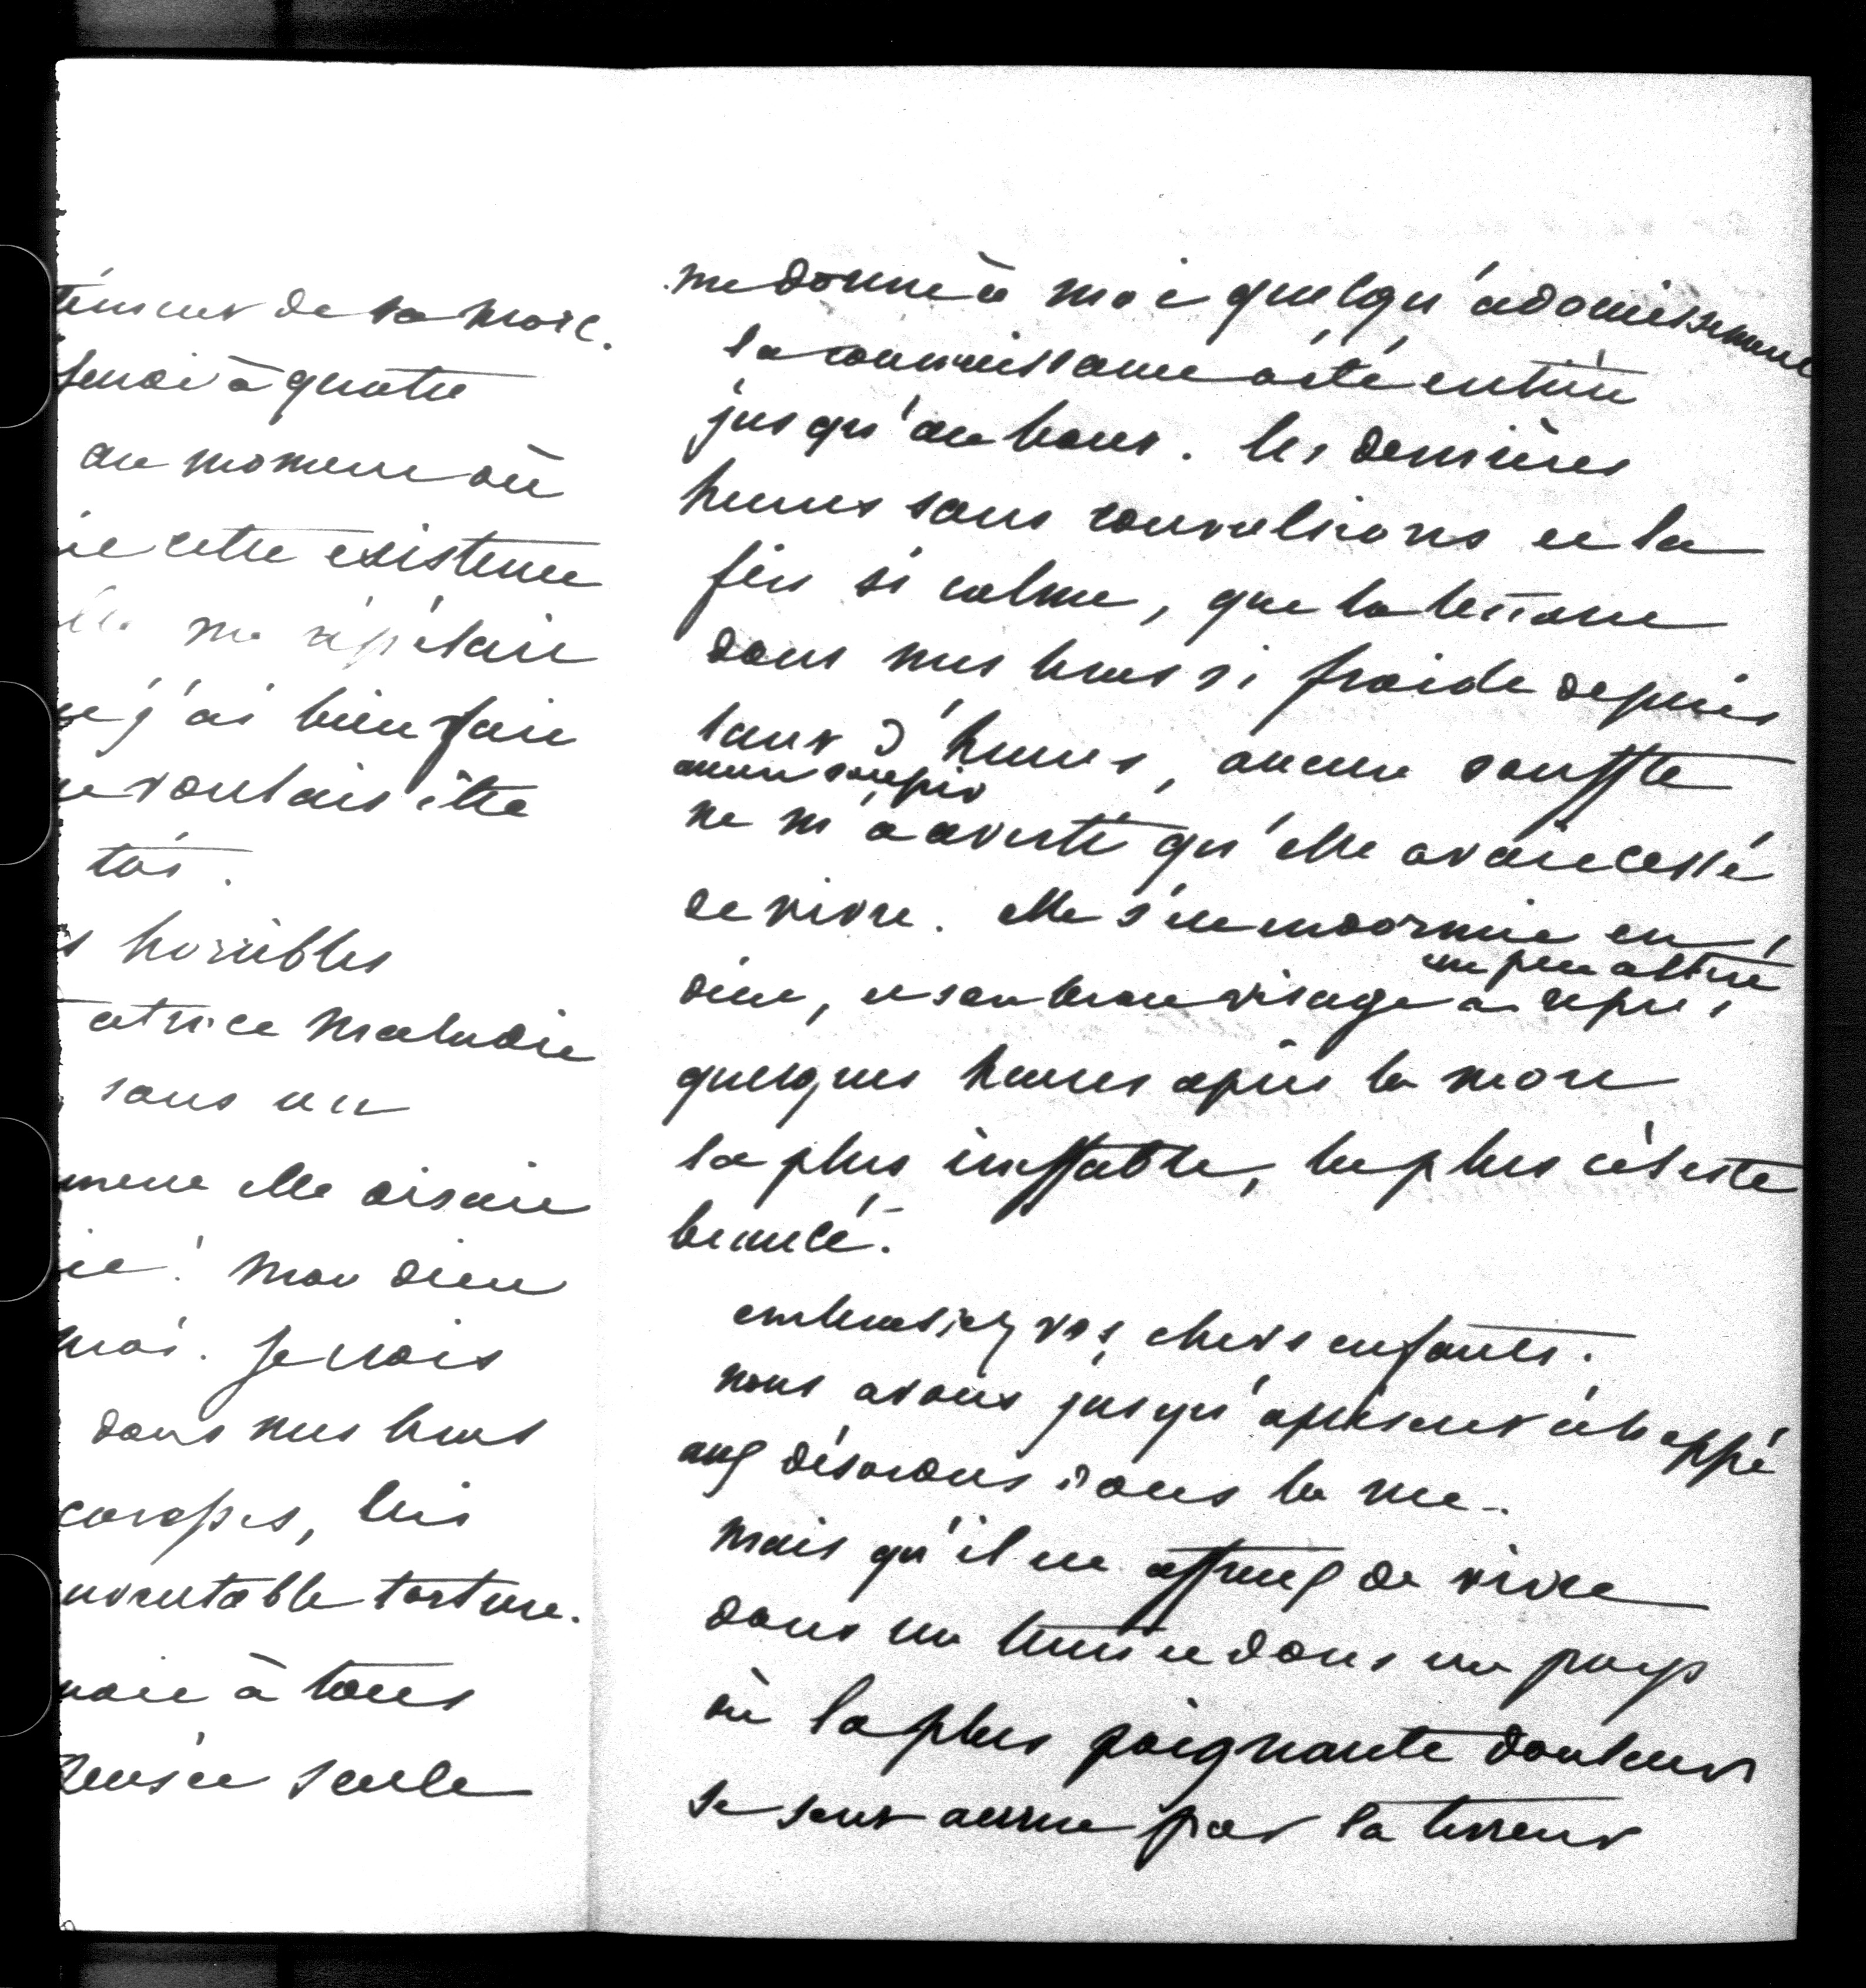 de sa mort.
à quatre
au moment où
cette existence
me répétait
j'ai bien fait
voulais être
toi.
horribles
atrice maladie
sans un
elle disait
mon dieu
moi. Je crois
dans mes bras
corps, les
torture.
à tous
seule
me donne à moi quelqu'adoucissement
la connaissance a été entière
jusqu'au bout. les dernières
heures sans convulsions et la
fin si calme, que la tenant
dans mes bras si froide depuis
tant d'heures, aucun souffle
aucun soupir
ne m'a averti qu'elle avait cessé
de vivre. elle s'est endormie en
un peu altéré
dieu, et son beau visage a repris
quelques heures après la mort
la plus ineffable, la plus céleste
beauté.
embrassez vos chers enfants.
nous avons jusqu'à présent échappé
aux désordres dans la rue.
mais qu'il est affreux de vivre
dans un tems et dans un pays
où la plus poignante douleur
se sent accrue par la terreur